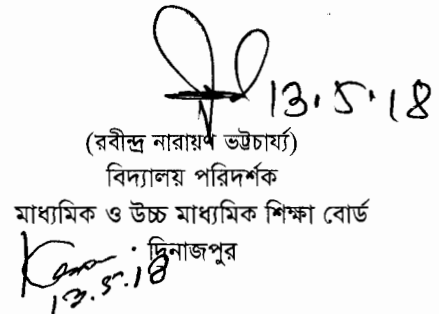 13.5.18
(রবীন্দ্র নারায়ণ ভট্টাচার্য্য)
বিদ্যালয় পরিদর্শক
মাধ্যমিক ও উচ্চ মাধ্যমিক শিক্ষা বোর্ড
দিনাজপুর
13.5.18